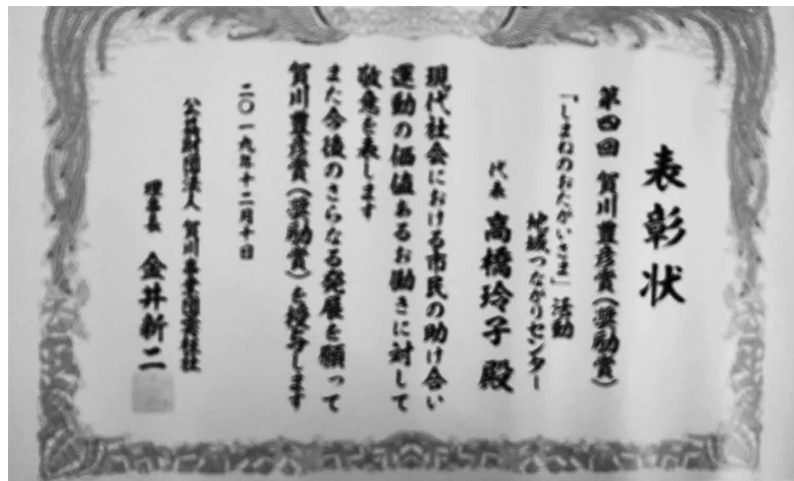 表彰状
第四回 賀川豊彦賞(奨励賞)
「しまねのおたがいさま」活動
地域つながりセンター
代表 高橋玲子 殿
現代社会における市民の助け合い
運動の価値あるお働きに対して
敬意を表します
また今後のさらなる発展を願って
賀川豊彦賞(奨励賞)を授与します
二〇一九年十二月十日
公益財団法人 賀川事業団雲柱社
理事長 金井新二